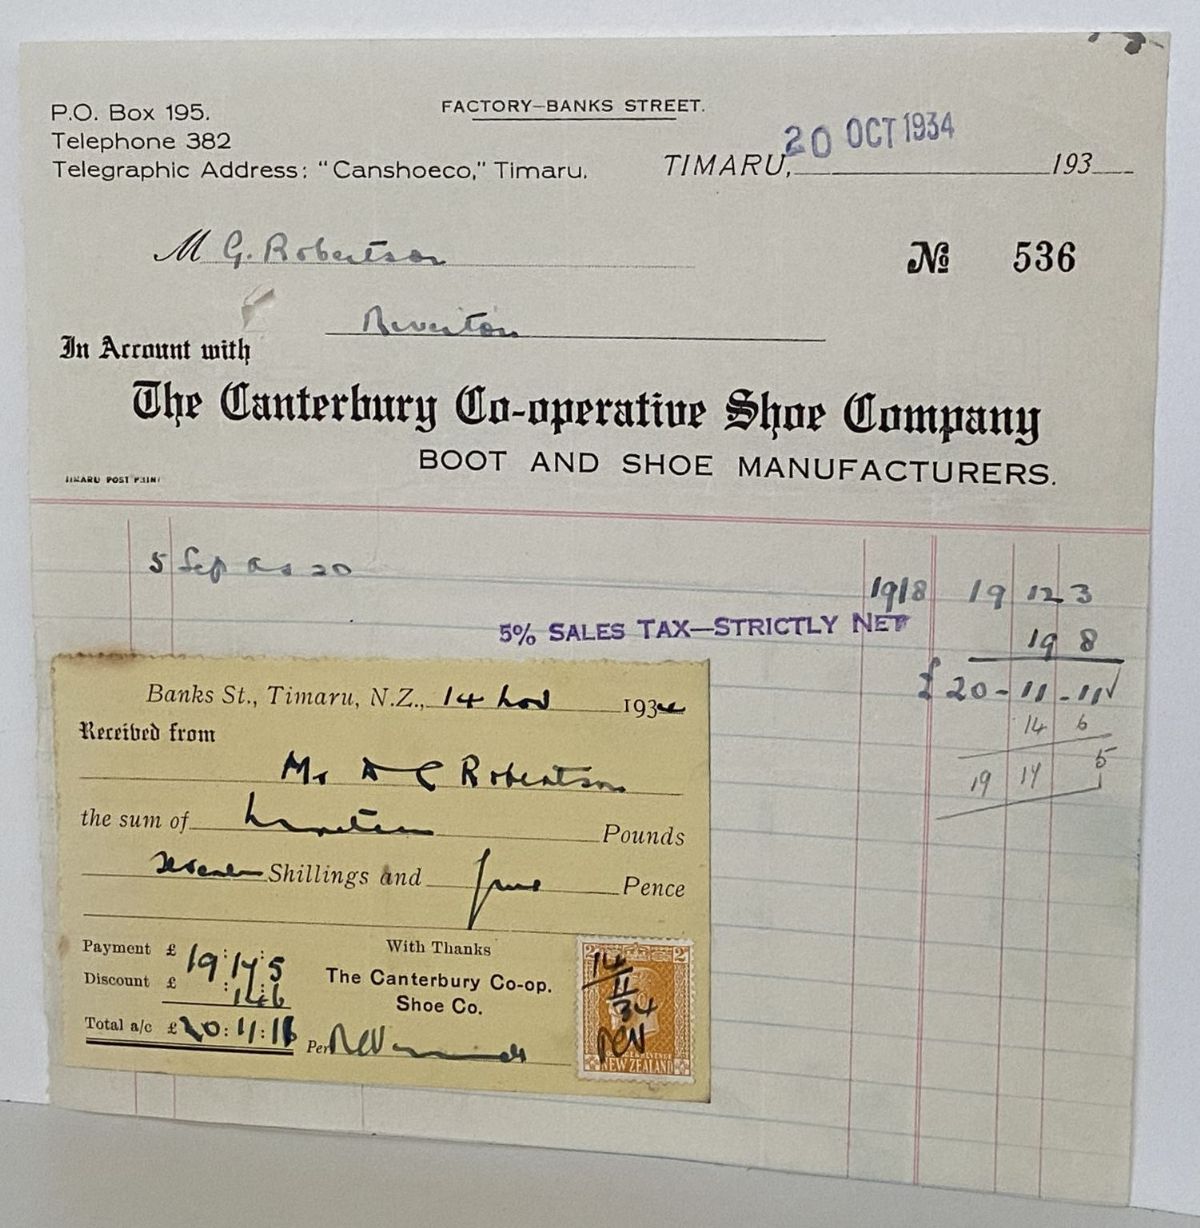 FACTORY—BANKS STREET.
P.O. Box 195.
Telephone 382
Telegraphic Address: "Canshoeco," Timaru.
TIMARU, 20 OCT 1934 193
M G. Robertson
No 536
Riverton
In Account with
The Canterbury Co-operative Shoe Company
BOOT AND SHOE MANUFACTURERS.
TIMARU POST PRINT
5 Sep 20 1918 19 12 3
5% SALES TAX—STRICTLY NET
19 8
£ 20 - 11 - 11
14 6
19 17 5
Banks St., Timaru, N.Z., 14 Nov 1934
Received from
Mr A G Robertson
the sum of Nineteen Pounds
Seventeen Shillings and five Pence
Payment £ 19:17:5
Discount £ :14:6
Total a/c £ 20:11:11
With Thanks
The Canterbury Co-op.
Shoe Co.
Per
2 2
14/11/34
NEW ZEALAND